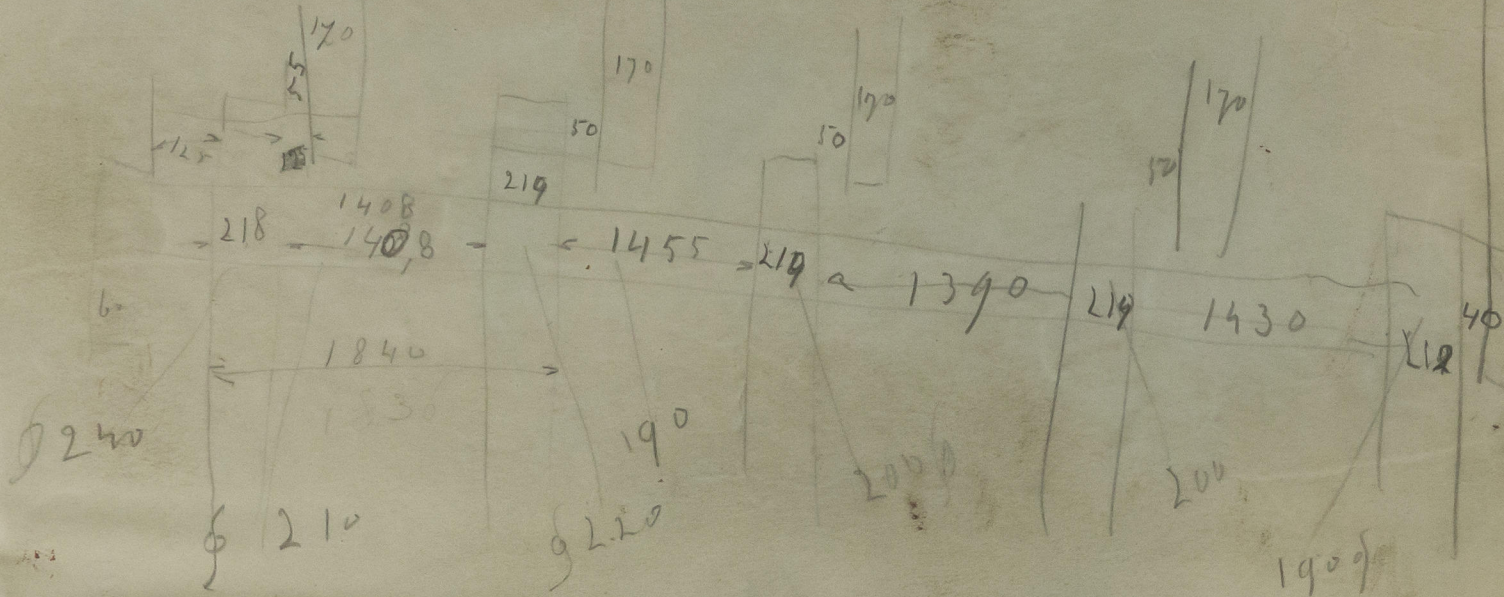 170
170
170
170
50
50
50
125
219
1408
218
1408
1455
219
1390
219
1430
40
1840
1830
ϕ 240
190
200 ϕ
200
ϕ 210
ϕ 220
190 ϕ